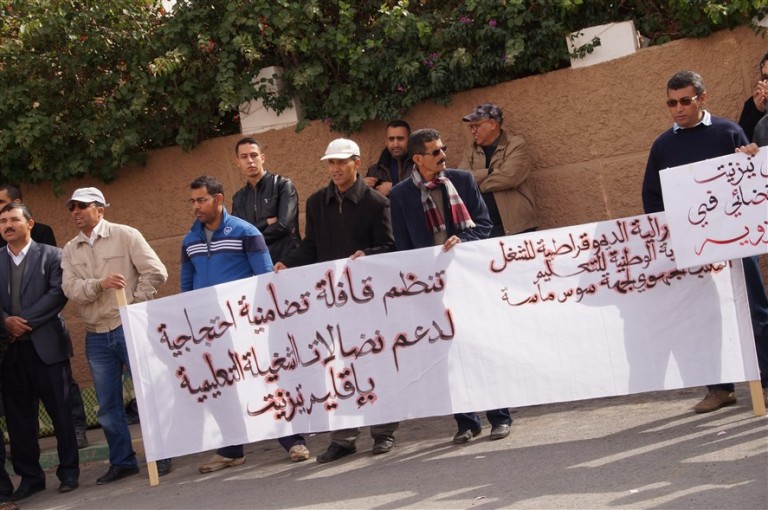 رالية الديموقراطية للشغل
ة الوطنية للتعليم
الجهوي لجهة سوس ماسة
تنظم قافلة تضامنية احتجاجية
لدعم نضالات الشغيلة التعليمية
بإقليم تزنيت
تيزنيت
ضائي في